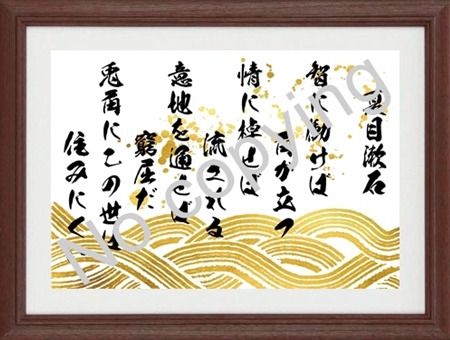 夏目漱石
智に働けば
角が立つ
情に棹せば
流される
意地を通せば
窮屈だ
兎角にこの世は
住みにく
No copying